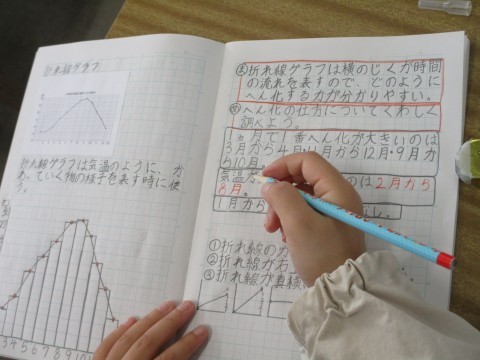 折れ線グラフ
折れ線グラフは気温のように、か
わっていく物の様子を表す時に使
う。
4 5 6 7 8 9 10
折れ線グラフは横のじくが時間
の流れを表すので どのように
へん化するかが分かりやすい。
へん化の仕方についてくわしく
調べよう。
1ヵ月で1番へん化が大きいのは
3月から4月・11月から12月・9月か
ら10月
気温
のは2月から
8月。
1月から
し。
①折れ線の
②折れ線が右
③折れ線が真横